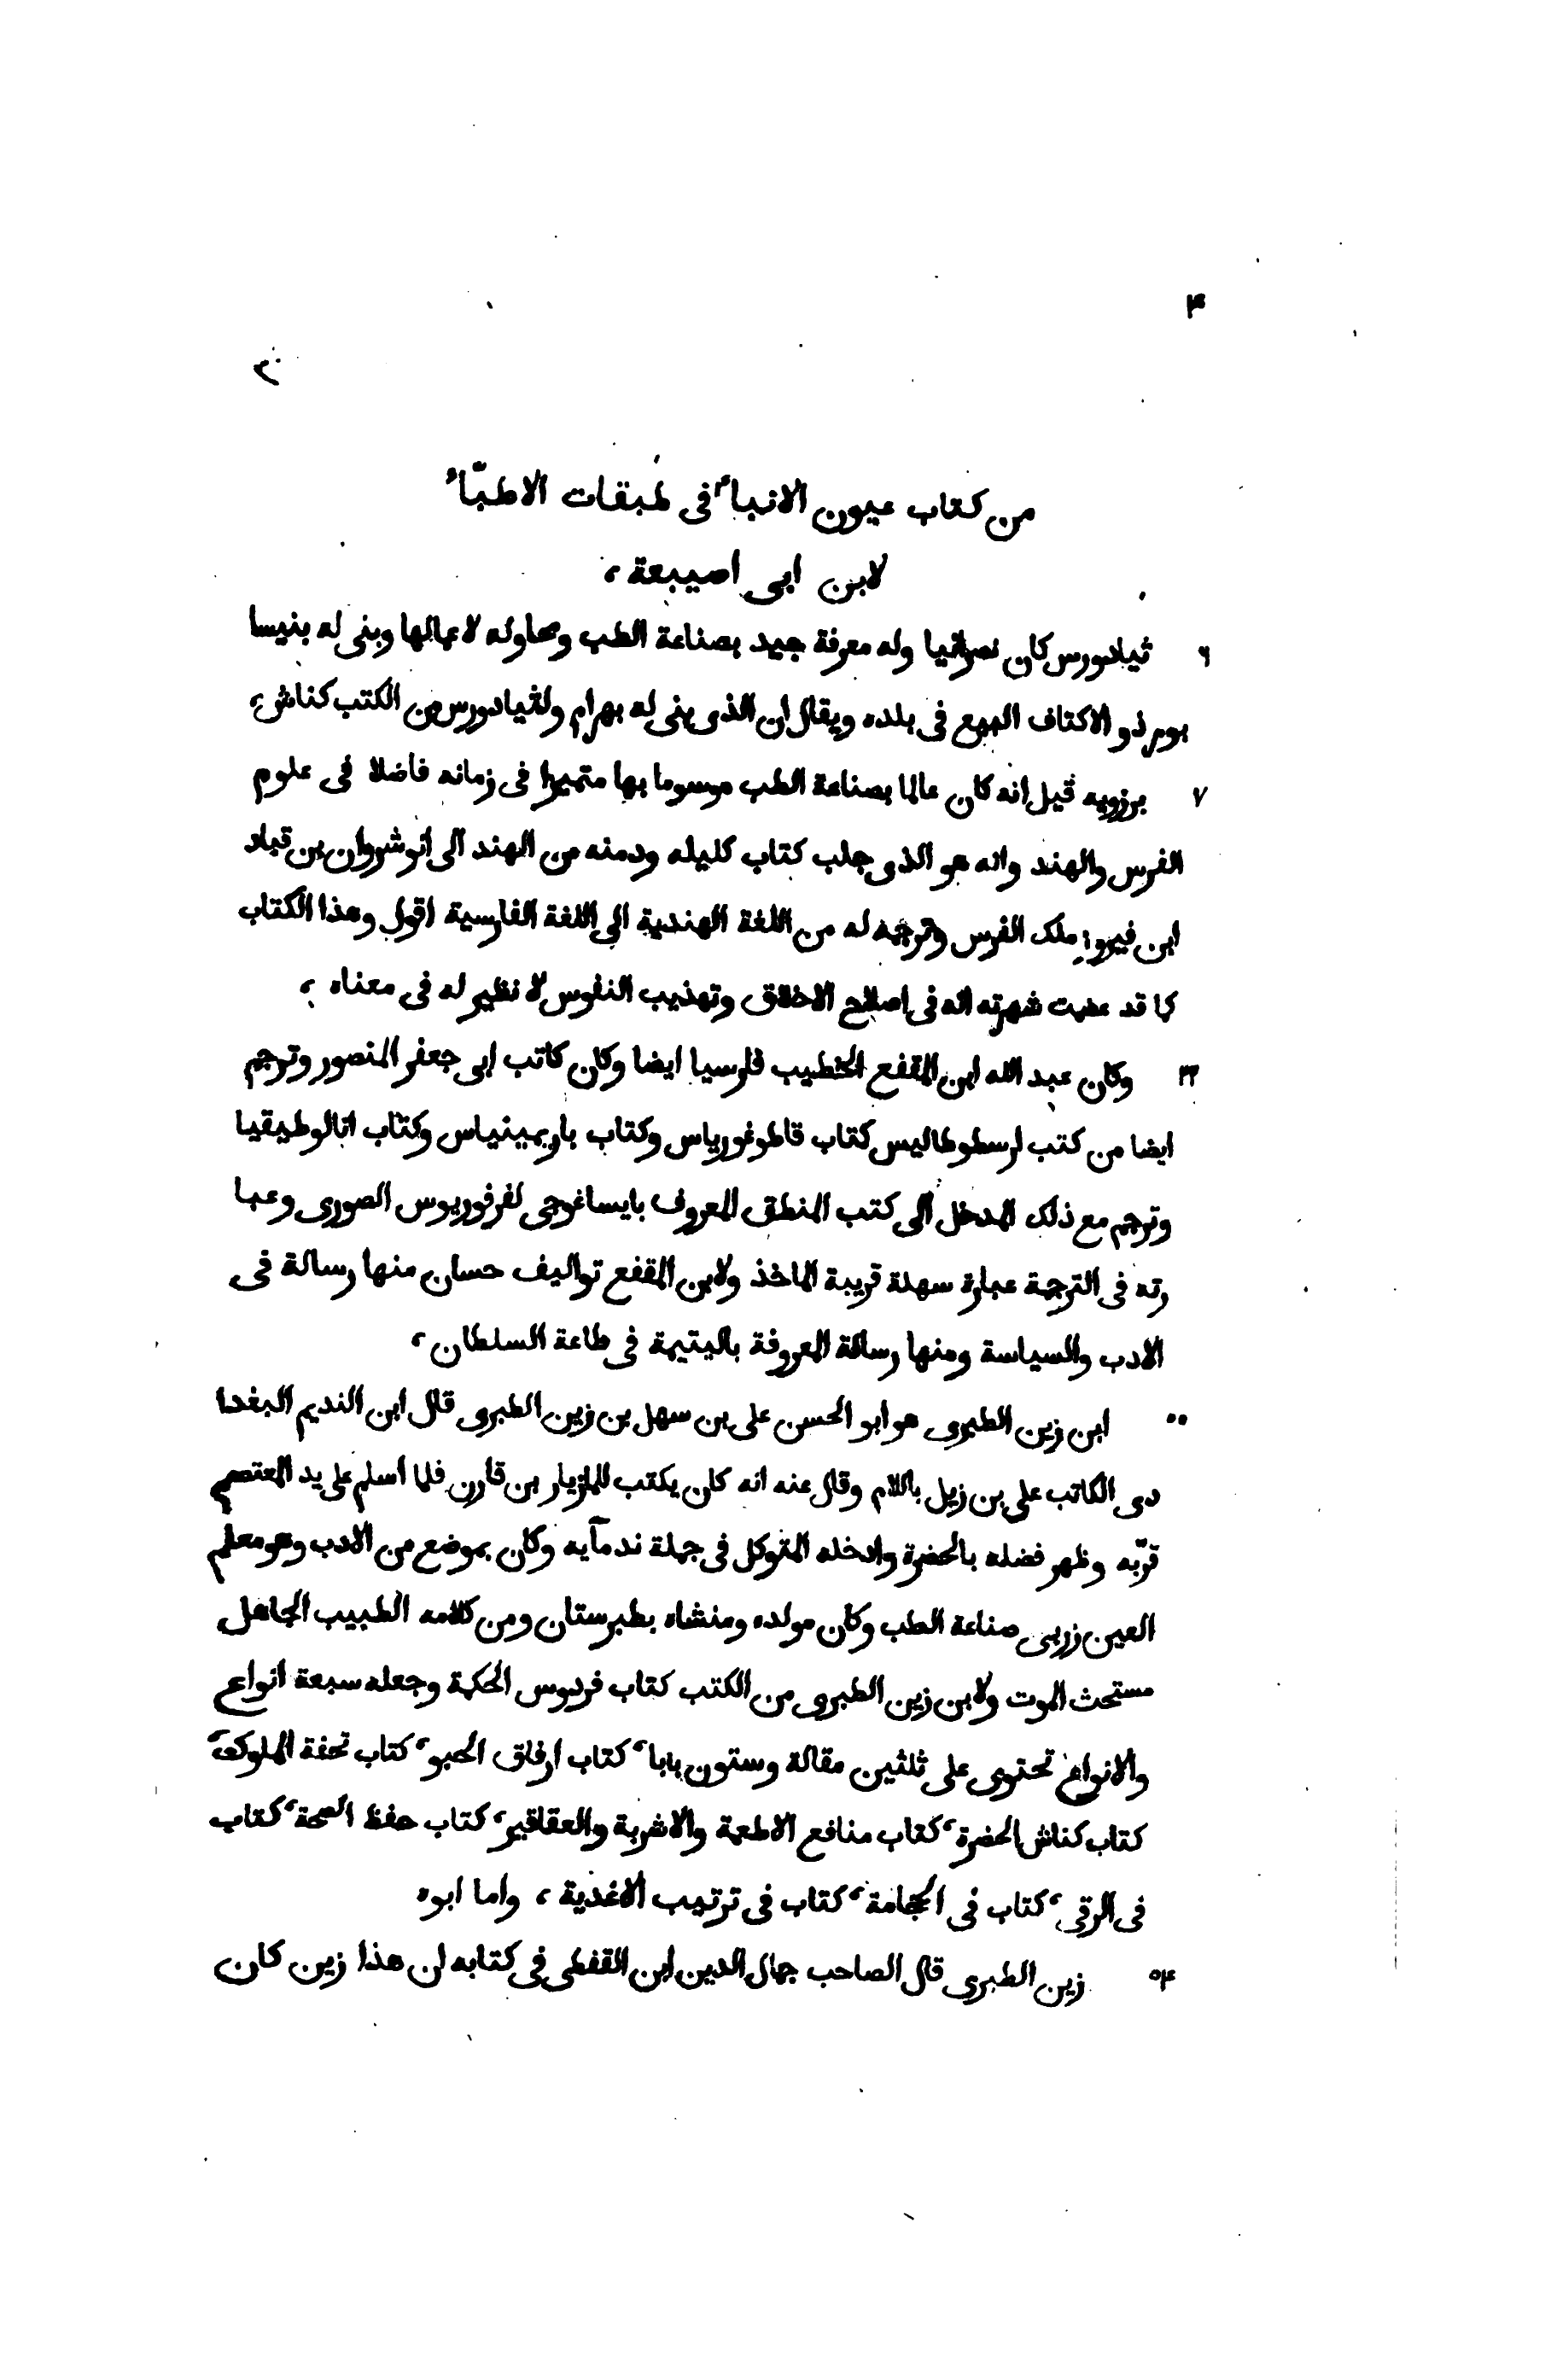 ۴
من كتاب عيون الانباء فى طبقات الاطبّاء
لابن ابى اصيبعة،
۶ ثيادورس كان نصرانيا وله معرفة جيد بصناعة الطب ومحاوله لاعمالها وبنى له بنيسا
بوم ذو الاكتاف البيع فى بلده ويقال ان الذى بنى له بهرام ولثيادورس من الكتب كناش،
۷ برزويه قيل انه كان عالما بصناعة الطب موسوما بها متميزا فى زمانه فاضلا فى علوم
الفرس والهند وانه هو الذى جلب كتاب كليله ودمنه من الهند الى انوشروان بن قباد
ابن فيروز ملك الفرس وترجمه له من اللغة الهندية الى اللغة الفارسية اقول وهذا الكتاب
كما قد عمت شهرته انه فى اصلاح الاخلاق وتهذيب النفوس لا نظير له فى معناه،
۲۳ وكان عبد الله ابن المقفع الخطيب فارسيا ايضا وكان كاتب ابى جعفر المنصور وترجم
ايضا من كتب ارسطوطاليس كتاب قاطوغورياس وكتاب باريمينياس وكتاب انالوطيقيا
وترجم مع ذلك المدخل الى كتب المنطق المعروف بايساغوجى لفرفوريوس الصورى وعبا
رته فى الترجمة عبارة سهلة قريبة الماخذ ولابن المقفع تواليف حسان منها رسالة فى
الادب والسياسة ومنها رسالة المعروفة باليتيمة فى طاعة السلطان،
۵۵ ابن زين الطبرى هو ابو الحسن على بن سهل بن زين الطبرى قال ابن النديم البغدا
دى الكاتب على بن زيل باللام وقال عنه انه كان يكتب للمازيار بن قارن فلما اسلم على يد المعتصم
قرّبه وظهر فضله بالحضرة وادخله المتوكل فى جملة ندمآيه وكان بموضع من الادب وهو معلم
العين زربى صناعة الطب وكان مولده ومنشاه بطبرستان ومن كلامه الطبيب الجاهل
مستحث الموت ولابن زين الطبرى من الكتب كتاب فردوس الحكمة وجعله سبعة انواع
والانواع تحتوى على ثلثين مقالة وستون بابا، كتاب ارفاق الحيو، كتاب تحفة الملوك،
كتاب كناش الحضرة، كتاب منافع الاطعمة والاشربة والعقاقير، كتاب حفظ الصحة، كتاب
فى الرقى، كتاب فى الحجامة، كتاب فى ترتيب الاغذية، واما ابوه
۵۴ زين الطبرى قال الصاحب جمال الدين ابن القفطى فى كتابه ان هذا زين كان